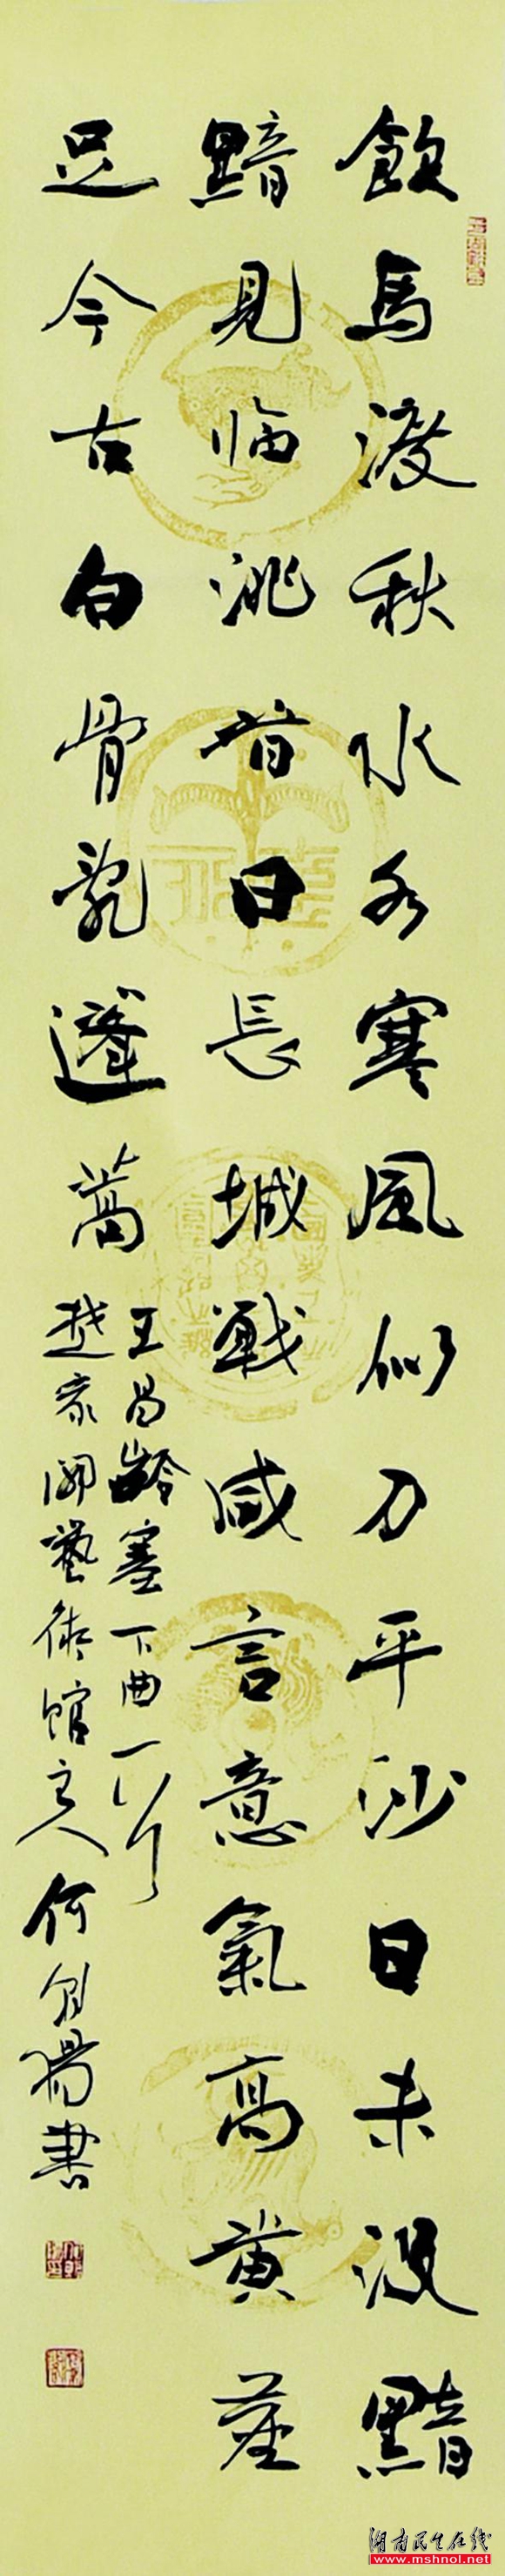 飲馬渡秋水水寒風似刀平沙日未没黯
黯見临洮昔日長城戰咸言意氣高黄塵
足今古白骨亂蓬蒿
王昌齡塞下曲一首
楚家湖藝術館主人何剑楊書
湖南民生在线
www.mshnol.net